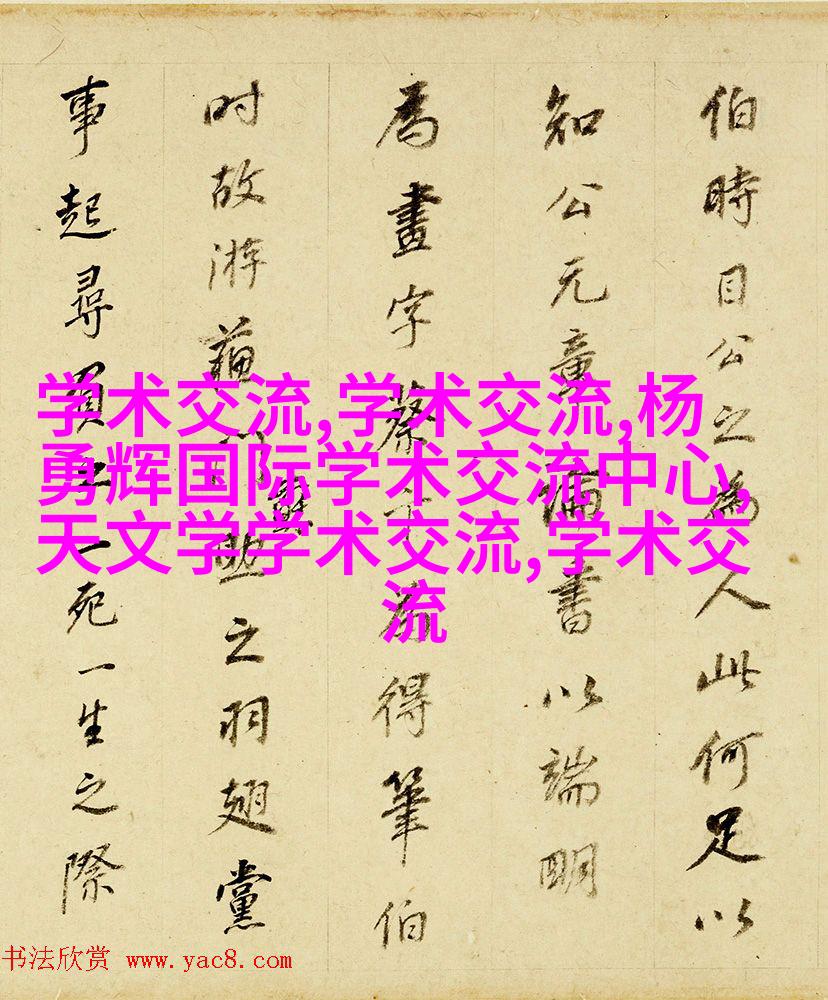 伯時目公之為人此何足以
知公元章偏書以端明
為畫字蔡下為得筆伯
时故游蘓門無㸃之羽翅黨
事起尋買之一死一生之際
学术交流,学术交流,杨
勇辉国际学术交流中心,
天文学学术交流,学术交
流
书法欣赏 www.yac8.com